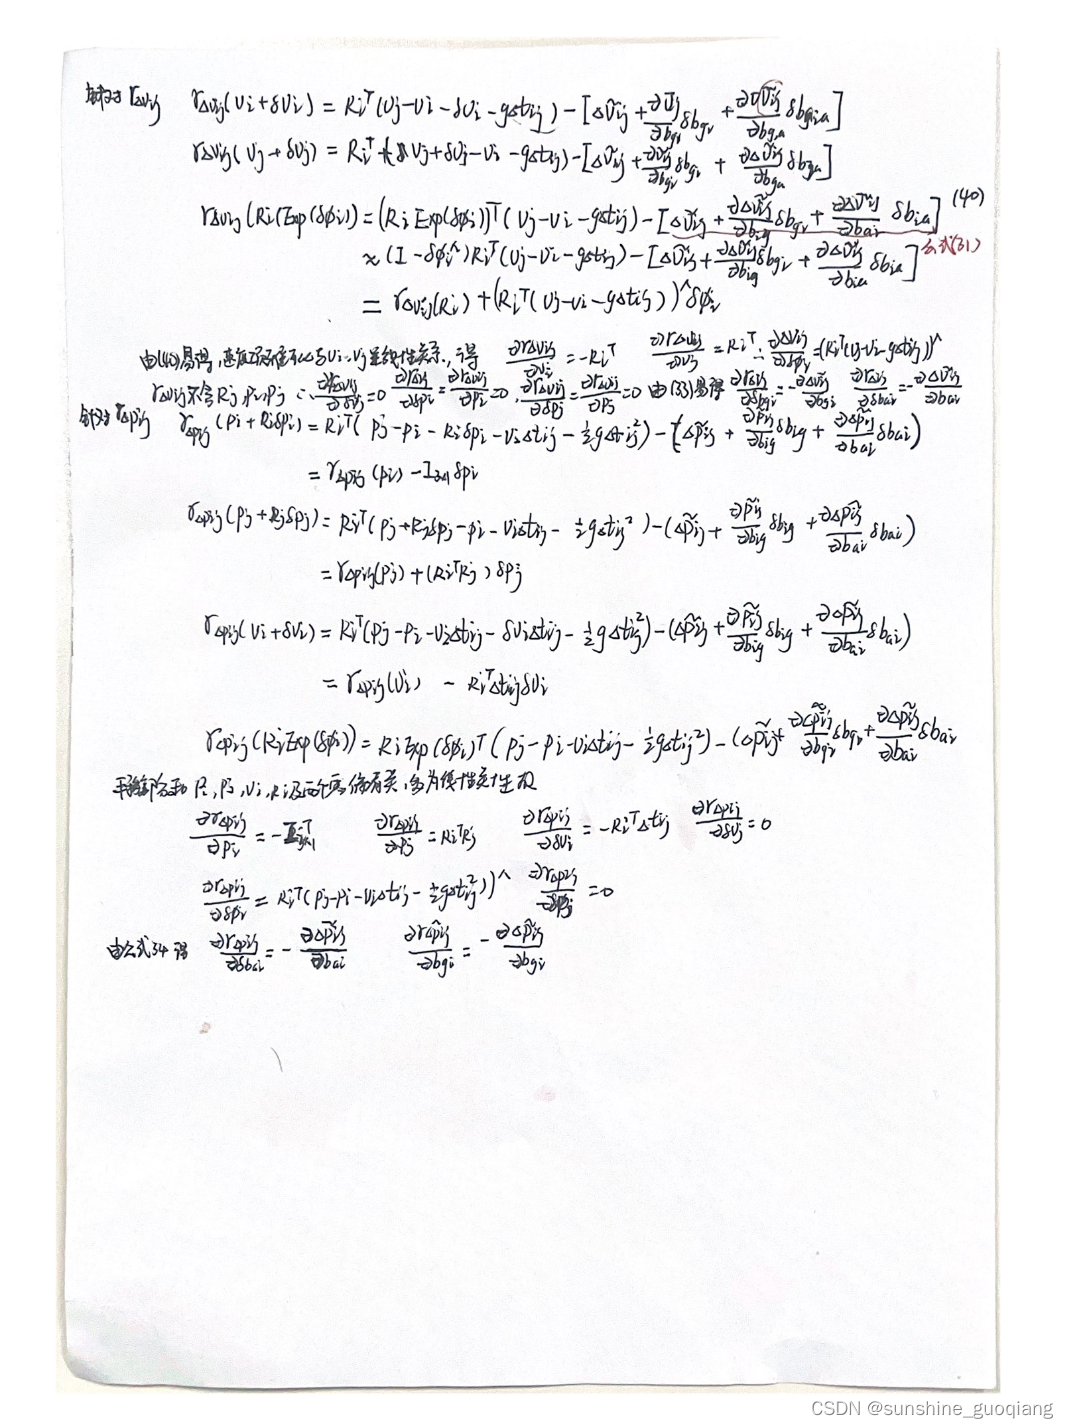 针对 rΔvij rΔvij(vi+δvi) = Ri^T(vj-vi-δvi-gΔtij) - [Δṽij + ∂ṽij/∂bgi δbgi + ∂Δṽij/∂bgia δbgia]
rΔvij(vj+δvj) = Ri^T(vj+δvj-vi-gΔtij) - [Δṽij + ∂ṽij/∂bgi δbgi + ∂Δṽij/∂bga δbga]
rΔvij(Ri(Exp(δφi)) = (Ri Exp(δφi))^T(vj-vi-gΔtij) - [Δṽij + ∂Δṽij/∂big δbgi + ∂Δṽij/∂bai δbia] (40)
≈ (I-δφi^∧)Ri^T(vj-vi-gΔtij) - [Δṽij + ∂Δṽij/∂big δbgi + ∂Δṽij/∂bia δbia] 公式(31)
= rΔvij(Ri) + (Ri^T(vj-vi-gΔtij))^∧ δφi
由(40)易得, vi、vj 线性关系, 得 ∂rΔvij/∂vi = -Ri^T ∂rΔvij/∂vj = Ri^T ∂Δvij/∂φi = (Ri^T(vj-vi-gΔtij))^∧
rΔvij不含Rj,pi,pj ∴ =0 ∂rΔvij/∂δpi = ∂rΔvij/∂pi = 0, ∂rΔvij/∂δpj = ∂rΔvij/∂pj = 0 由(33)易得 ∂rΔvij/∂δbgi = -∂Δṽij/∂bgi ∂rΔvij/∂δbai = -∂Δṽij/∂bai
针对 rΔpij rΔpij(pi+Riδpi) = Ri^T(pj-pi-Riδpi-viΔtij-½gΔtij²) - (Δp̃ij + ∂p̃ij/∂big δbig + ∂Δp̃ij/∂bai δbai)
= rΔpij(pi) - I3×1 δpi
rΔpij(pj+Rjδpj) = Ri^T(pj+Rjδpj-pi-viΔtij-½gΔtij²) - (Δp̃ij + ∂p̃ij/∂big δbig + ∂Δp̃ij/∂bai δbai)
= rΔpij(pj) + (Ri^T Rj) δpj
rΔpij(vi+δvi) = Ri^T(pj-pi-viΔtij-δviΔtij-½gΔtij²) - (Δp̃ij + ∂p̃ij/∂big δbig + ∂Δp̃ij/∂bai δbai)
= rΔpij(vi) - Ri^TΔtijδvi
rΔpij(RiExp(δφi)) = RiExp(δφi)^T(pj-pi-viΔtij-½gΔtij²) - (Δp̃ij + ∂Δp̃ij/∂bgi δbgi + ∂Δp̃ij/∂bai δbai
Pi, Pj, vi, Ri 及两个 偏有关, 线性
∂rΔpij/∂pi = -I3×1 ∂rΔpij/∂pj = Ri^TRj ∂rΔpij/∂δvi = -Ri^TΔtij ∂rΔpij/∂δvj = 0
∂rΔpij/∂δφi = Ri^T(pj-pi-viΔtij-½gΔtij²))^∧ ∂rΔpij/∂δφj = 0
由公式34得 ∂rΔpij/∂δbai = -∂Δp̃ij/∂bai ∂rΔpij/∂bgi = -∂Δp̃ij/∂bgi
CSDN @sunshine_guoqiang